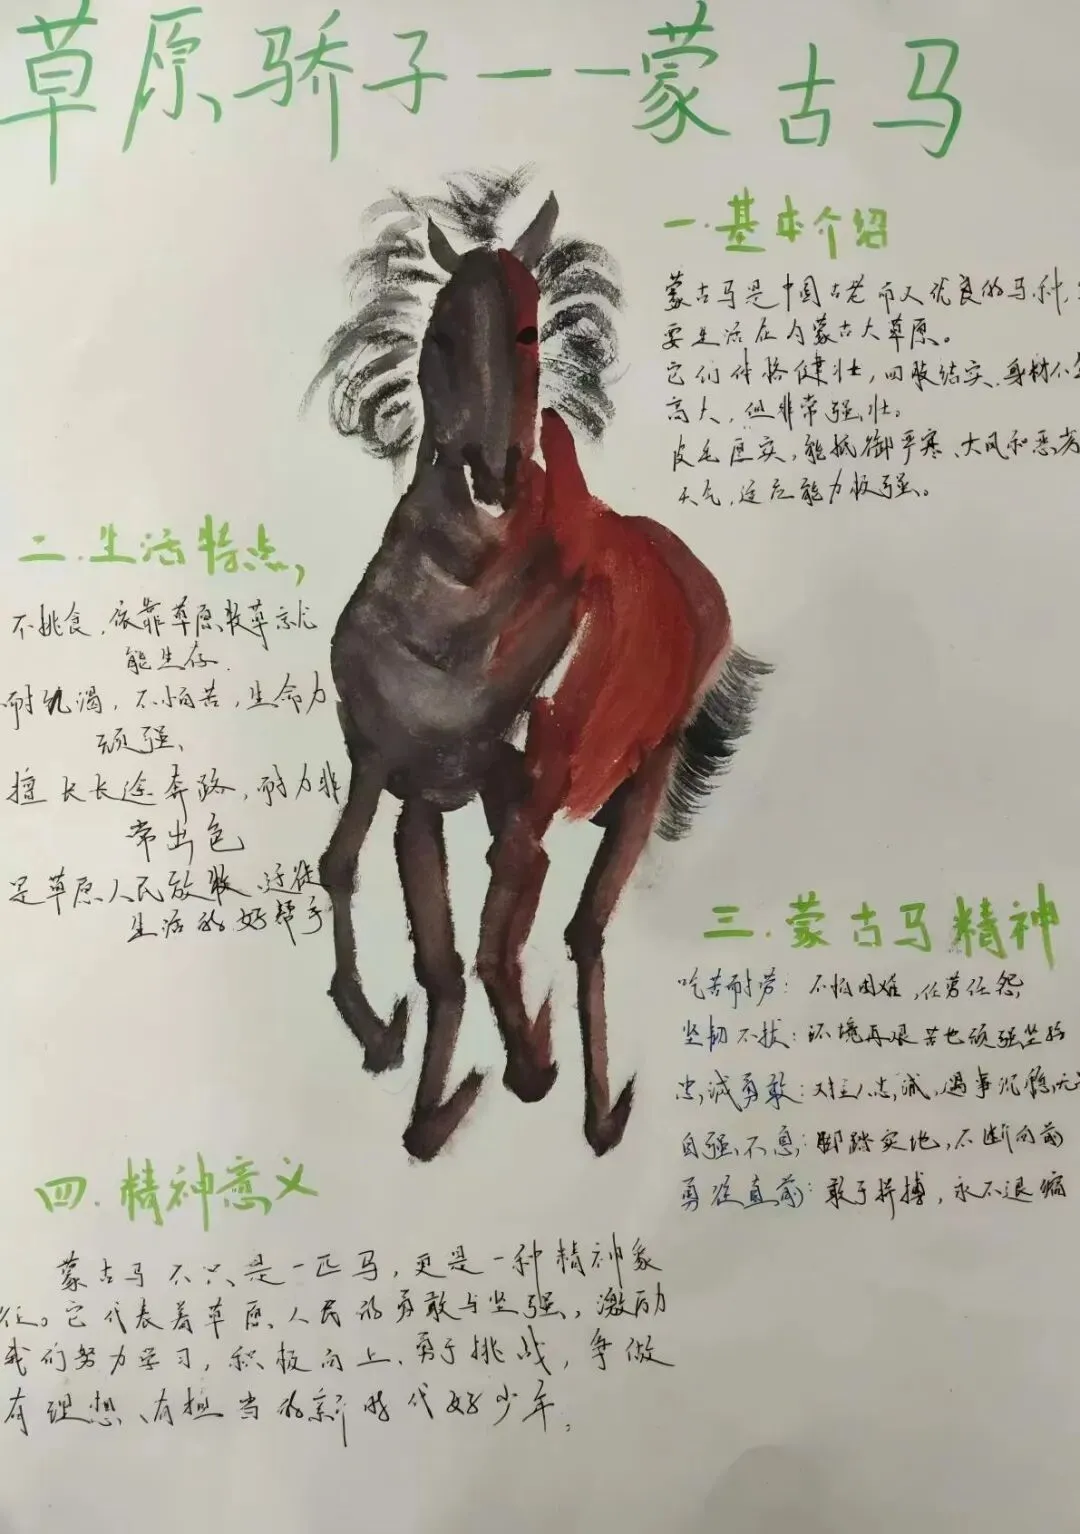 草原骄子——蒙古马
一.基本介绍
蒙古马是中国古老而又优良的马种,
要生活在内蒙古大草原。
它们体格健壮,四肢结实.身材不
高大,但非常强壮。
皮毛厚实,能抵御严寒、大风和恶劣
天气,适应能力极强。
二.生活特点,
不挑食,依靠草原牧草就
能生存.
耐饥渴,不怕苦,生命力
顽强、
擅长长途奔跑,耐力非
常出色
是草原人民放牧、迁徙
生活的好帮手
三.蒙古马精神
吃苦耐劳:不怕困难,任劳任怨,
坚韧不拔:环境再艰苦也顽强坚持
忠诚勇敢:对主人忠诚,遇事沉稳
自强不息:脚踏实地,不断向前
勇往直前:敢于拼搏,永不退缩
四.精神意义
蒙古马不只是一匹马,更是一种精神象
征。它代表着草原人民的勇敢与坚强,激励
我们努力学习,积极向上.勇于挑战,争做
有理想、有担当的新时代好少年,